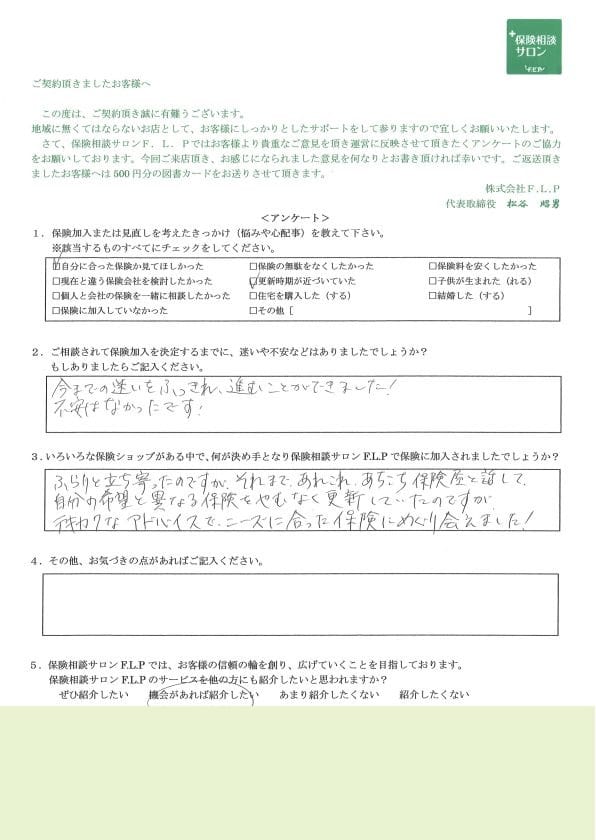 保険相談
サロン
F.L.P
ご契約頂きましたお客様へ
この度は、ご契約頂き誠に有難うございます。
地域に無くてはならないお店として、お客様にしっかりとしたサポートをして参りますので宜しくお願いいたします。
さて、保険相談サロンF．L．Pではお客様より貴重なご意見を頂き運営に反映させて頂きたくアンケートのご協力
をお願いしております。今回ご来店頂き、お感じになられました意見を何なりとお書き頂ければ幸いです。ご返送頂き
ましたお客様へは500円分の図書カードをお送りさせて頂きます。
株式会社F.L.P
代表取締役 松谷 昭男
＜アンケート＞
１．保険加入または見直しを考えたきっかけ（悩みや心配事）を教えて下さい。
※該当するものすべてにチェックをしてください。
☑自分に合った保険か見てほしかった □保険の無駄をなくしたかった □保険料を安くしたかった
□現在と違う保険会社を検討したかった ☑更新時期が近づいていた □子供が生まれた（れる）
□個人と会社の保険を一緒に相談したかった □住宅を購入した（する） □結婚した（する）
□保険に加入していなかった □その他［ ］
２．ご相談されて保険加入を決定するまでに、迷いや不安などはありましたでしょうか？
もしありましたらご記入ください。
今までの迷いをふっきれ、進むことができました！
不安はなかったです！
３.いろいろな保険ショップがある中で、何が決め手となり保険相談サロンF.L.Pで保険に加入されましたでしょうか？
ふらりと立ち寄ったのですが、それまで、あれこれ、あちこち保険屋と話して、
自分の希望と異なる保険をやむなく更新していたのですが
テキカクなアドバイスで、ニーズに合った保険にめぐり会えました！
４．その他、お気づきの点があればご記入ください。
５．保険相談サロンF.L.Pでは、お客様の信頼の輪を創り、広げていくことを目指しております。
保険相談サロンF.L.Pのサービスを他の方にも紹介したいと思われますか？
ぜひ紹介したい 機会があれば紹介したい あまり紹介したくない 紹介したくない